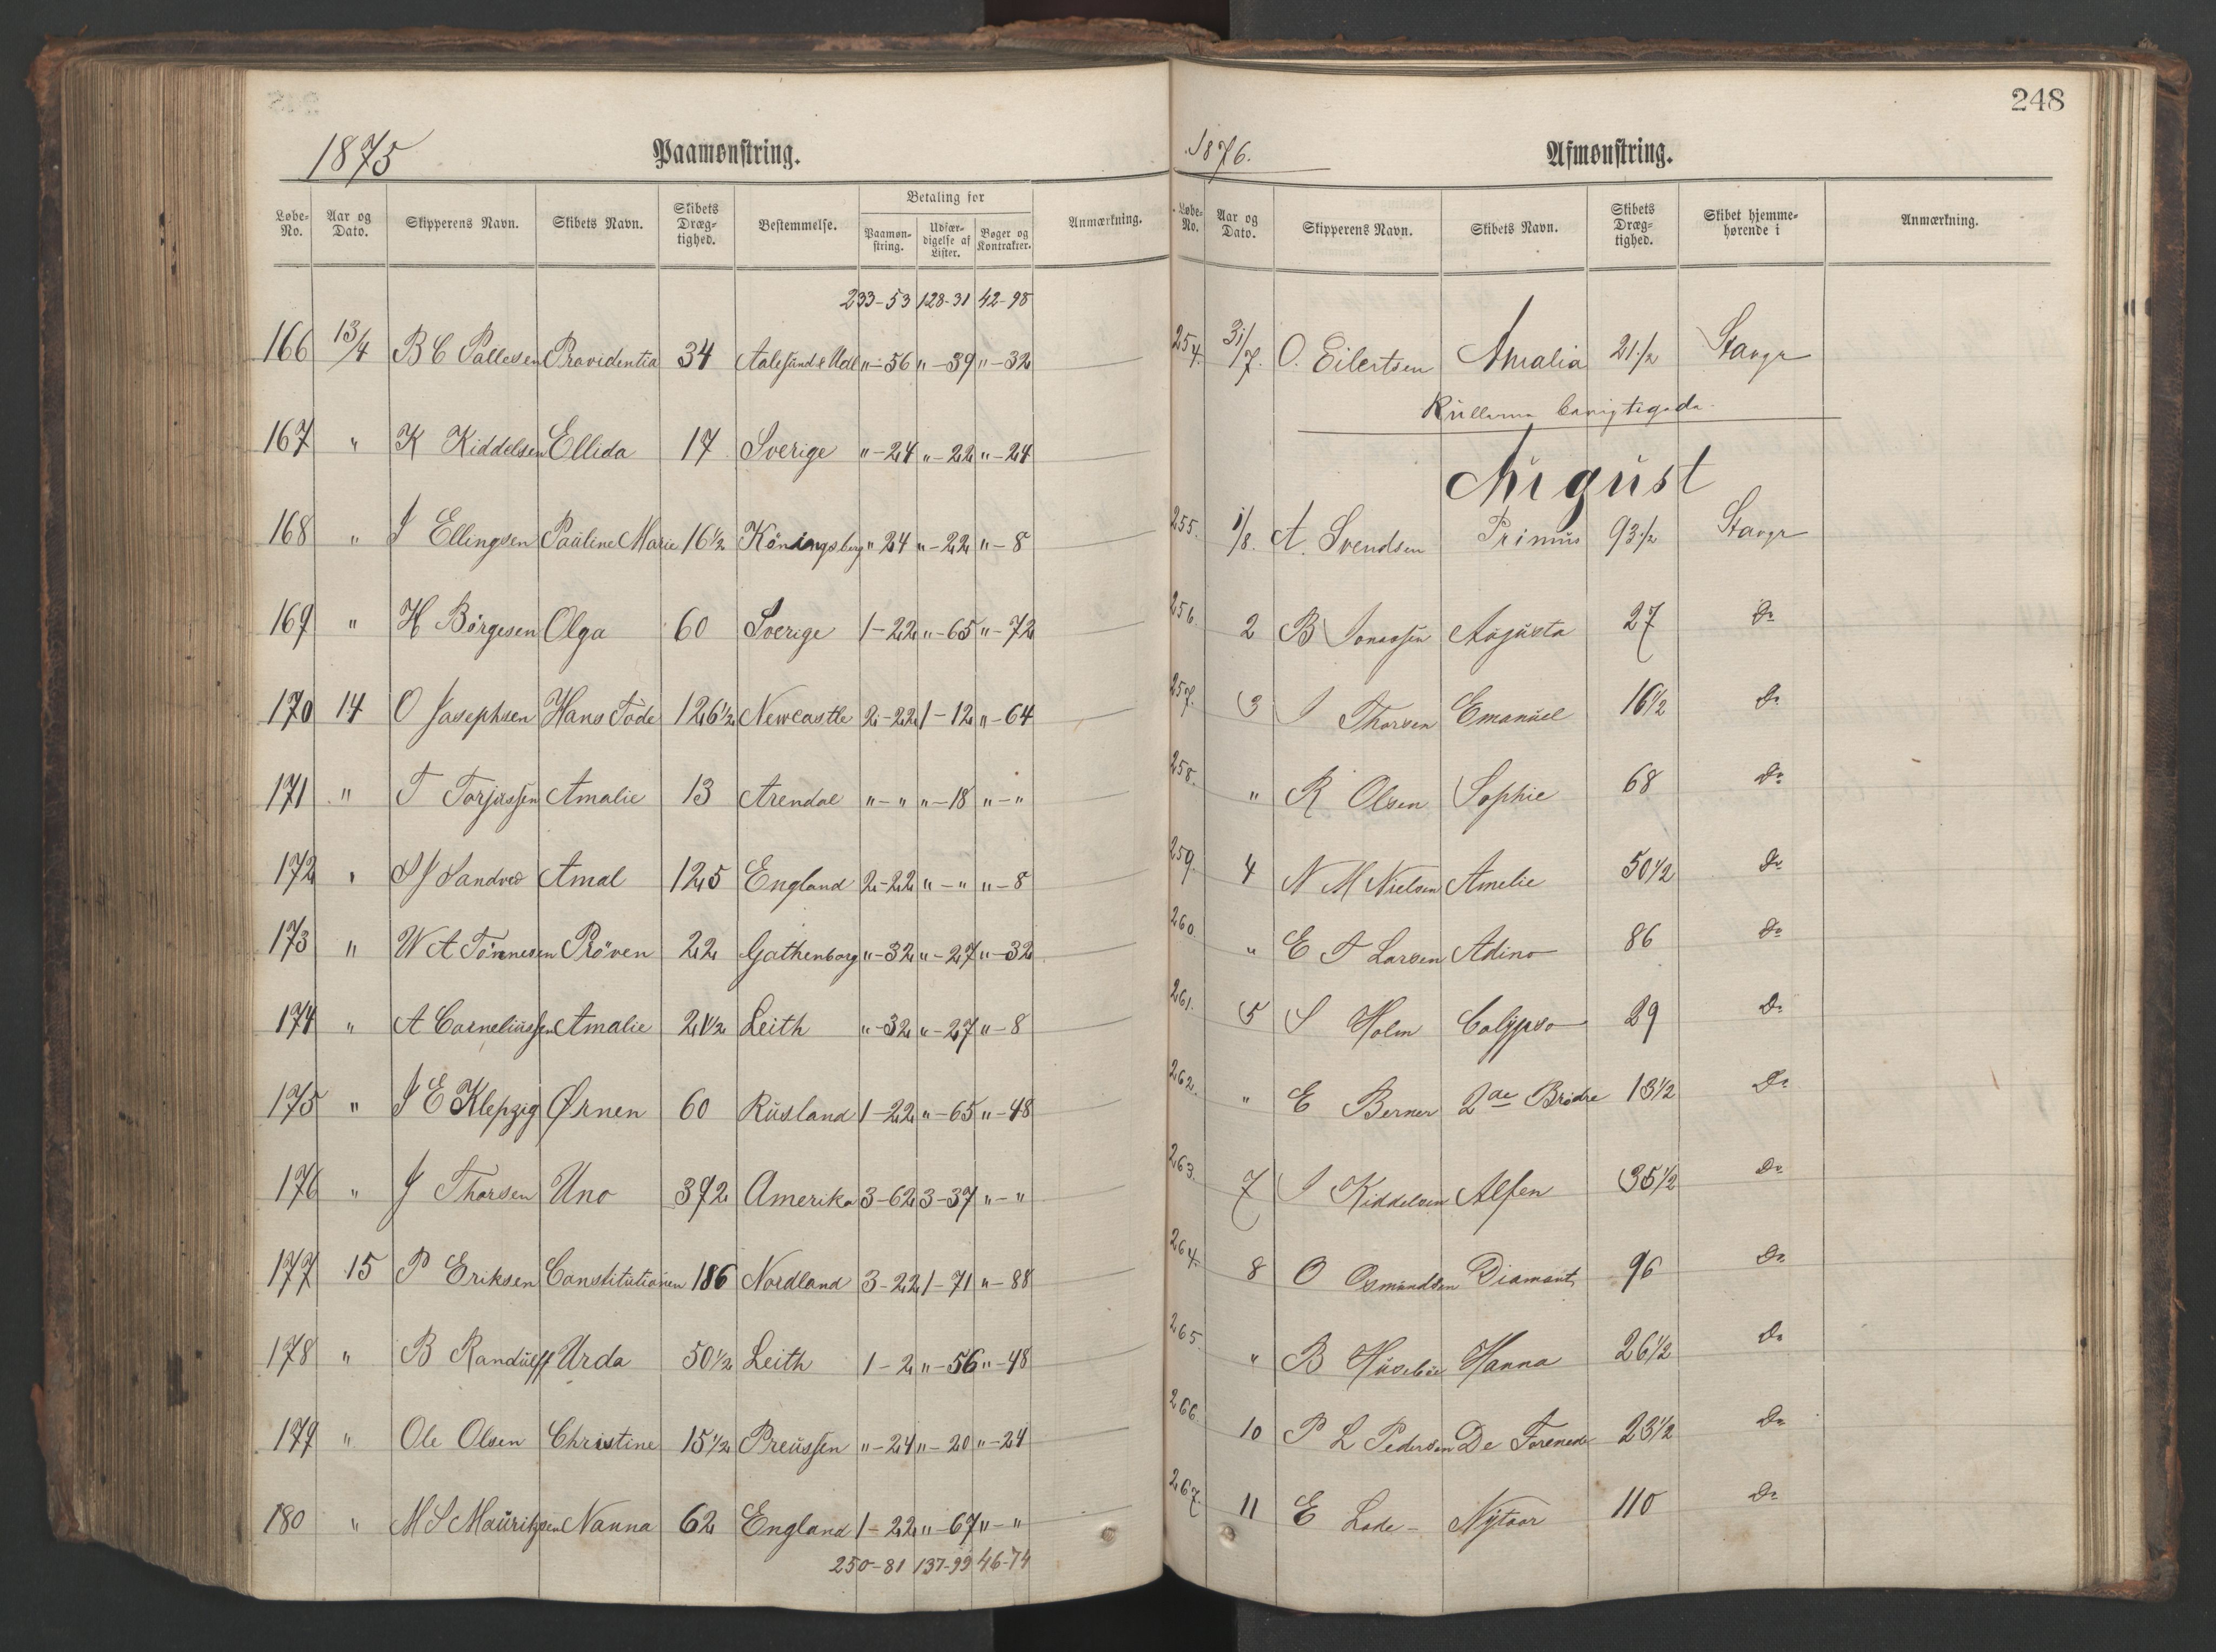 1875 Paamønstring.
Løbe-No. Aar og Dato. Skipperens Navn. Skibets Navn. Skibets Dræg-tighed. Bestemmelse. Betaling for Paamøn-string. Udfær-digelse af Lister. Bøger og Kontrakter. Anmærkning.
233-53 128-31 42-98
166 13/4 B C Pallesen Providentia 34 Aalesund & Udl "-56 "-39 "-32
167 " K Kiddelsen Ellida 17 Sverige "-24 "-22 "-24
168 " J Ellingsen Pauline Marie 16 1/2 Köningsberg "-24 "-22 "-8
169 " H Börgesen Olga 60 Sverige 1-22 "-65 "-72
170 14 O Josephsen Hans Tode 126 1/2 Newcastle 2-22 1-12 "-64
171 " T Torjussen Amalie 13 Arendal "-" "-18 "-"
172 " S J Sandved Amal 125 England 2-22 "-" "-8
173 " W A Tönnesen Pröven 22 Gothenborg "-32 "-27 "-32
174 " A Corneliussen Amalie 21 1/2 Leith "-32 "-27 "-8
175 " J E Klepzig Ørnen 60 Rusland 1-22 "-65 "-48
176 " J Thorsen Uno 372 Amerika 3-62 3-37 "-"
177 15 P Eriksen Constitutionen 186 Nordland 3-22 1-71 "-88
178 " B Randulff Urda 50 1/2 Leith 1-2 "-56 "-48
179 " Ole Olsen Christine 15 1/2 Preussen "-24 "-20 "-24
180 " M S Mauritzsen Nanna 62 England 1-22 "-67 "-"
250-81 137-99 46-74
248
1876. Afmønstring.
Løbe-No. Aar og Dato. Skipperens Navn. Skibets Navn. Skibets Dræg-tighed. Skibet hjemme-hørende i Anmærkning.
254. 31/7. O. Eilertsen Amalia 21 1/2 Stavgr
August
255. 1/8. A. Svendsen Primus 93 1/2 Stavgr
256. 2 B Jonassen Augusta 27 Do
257. 3 J Thorsen Emanuel 16 1/2 Do
258. " R Olsen Sophie 68 Do
259. 4 N M Nielsen Amelie 50 1/2 Do
260. " E T Larsen Adino 86 Do
261. 5 S Holm Calypso 29 Do
262. " E Berner 2de Brödre 13 1/2 Do
263. 7 J Kiddelsen Alfen 35 1/2 Do
264. 8 O Osmundsen Diamant 96 Do
265. " B Husebøe Hanna 26 1/2 Do
266. 10 P L Pedersen De Forenede 23 1/2 Do
267. 11 E Lode Nytaar 110 Do